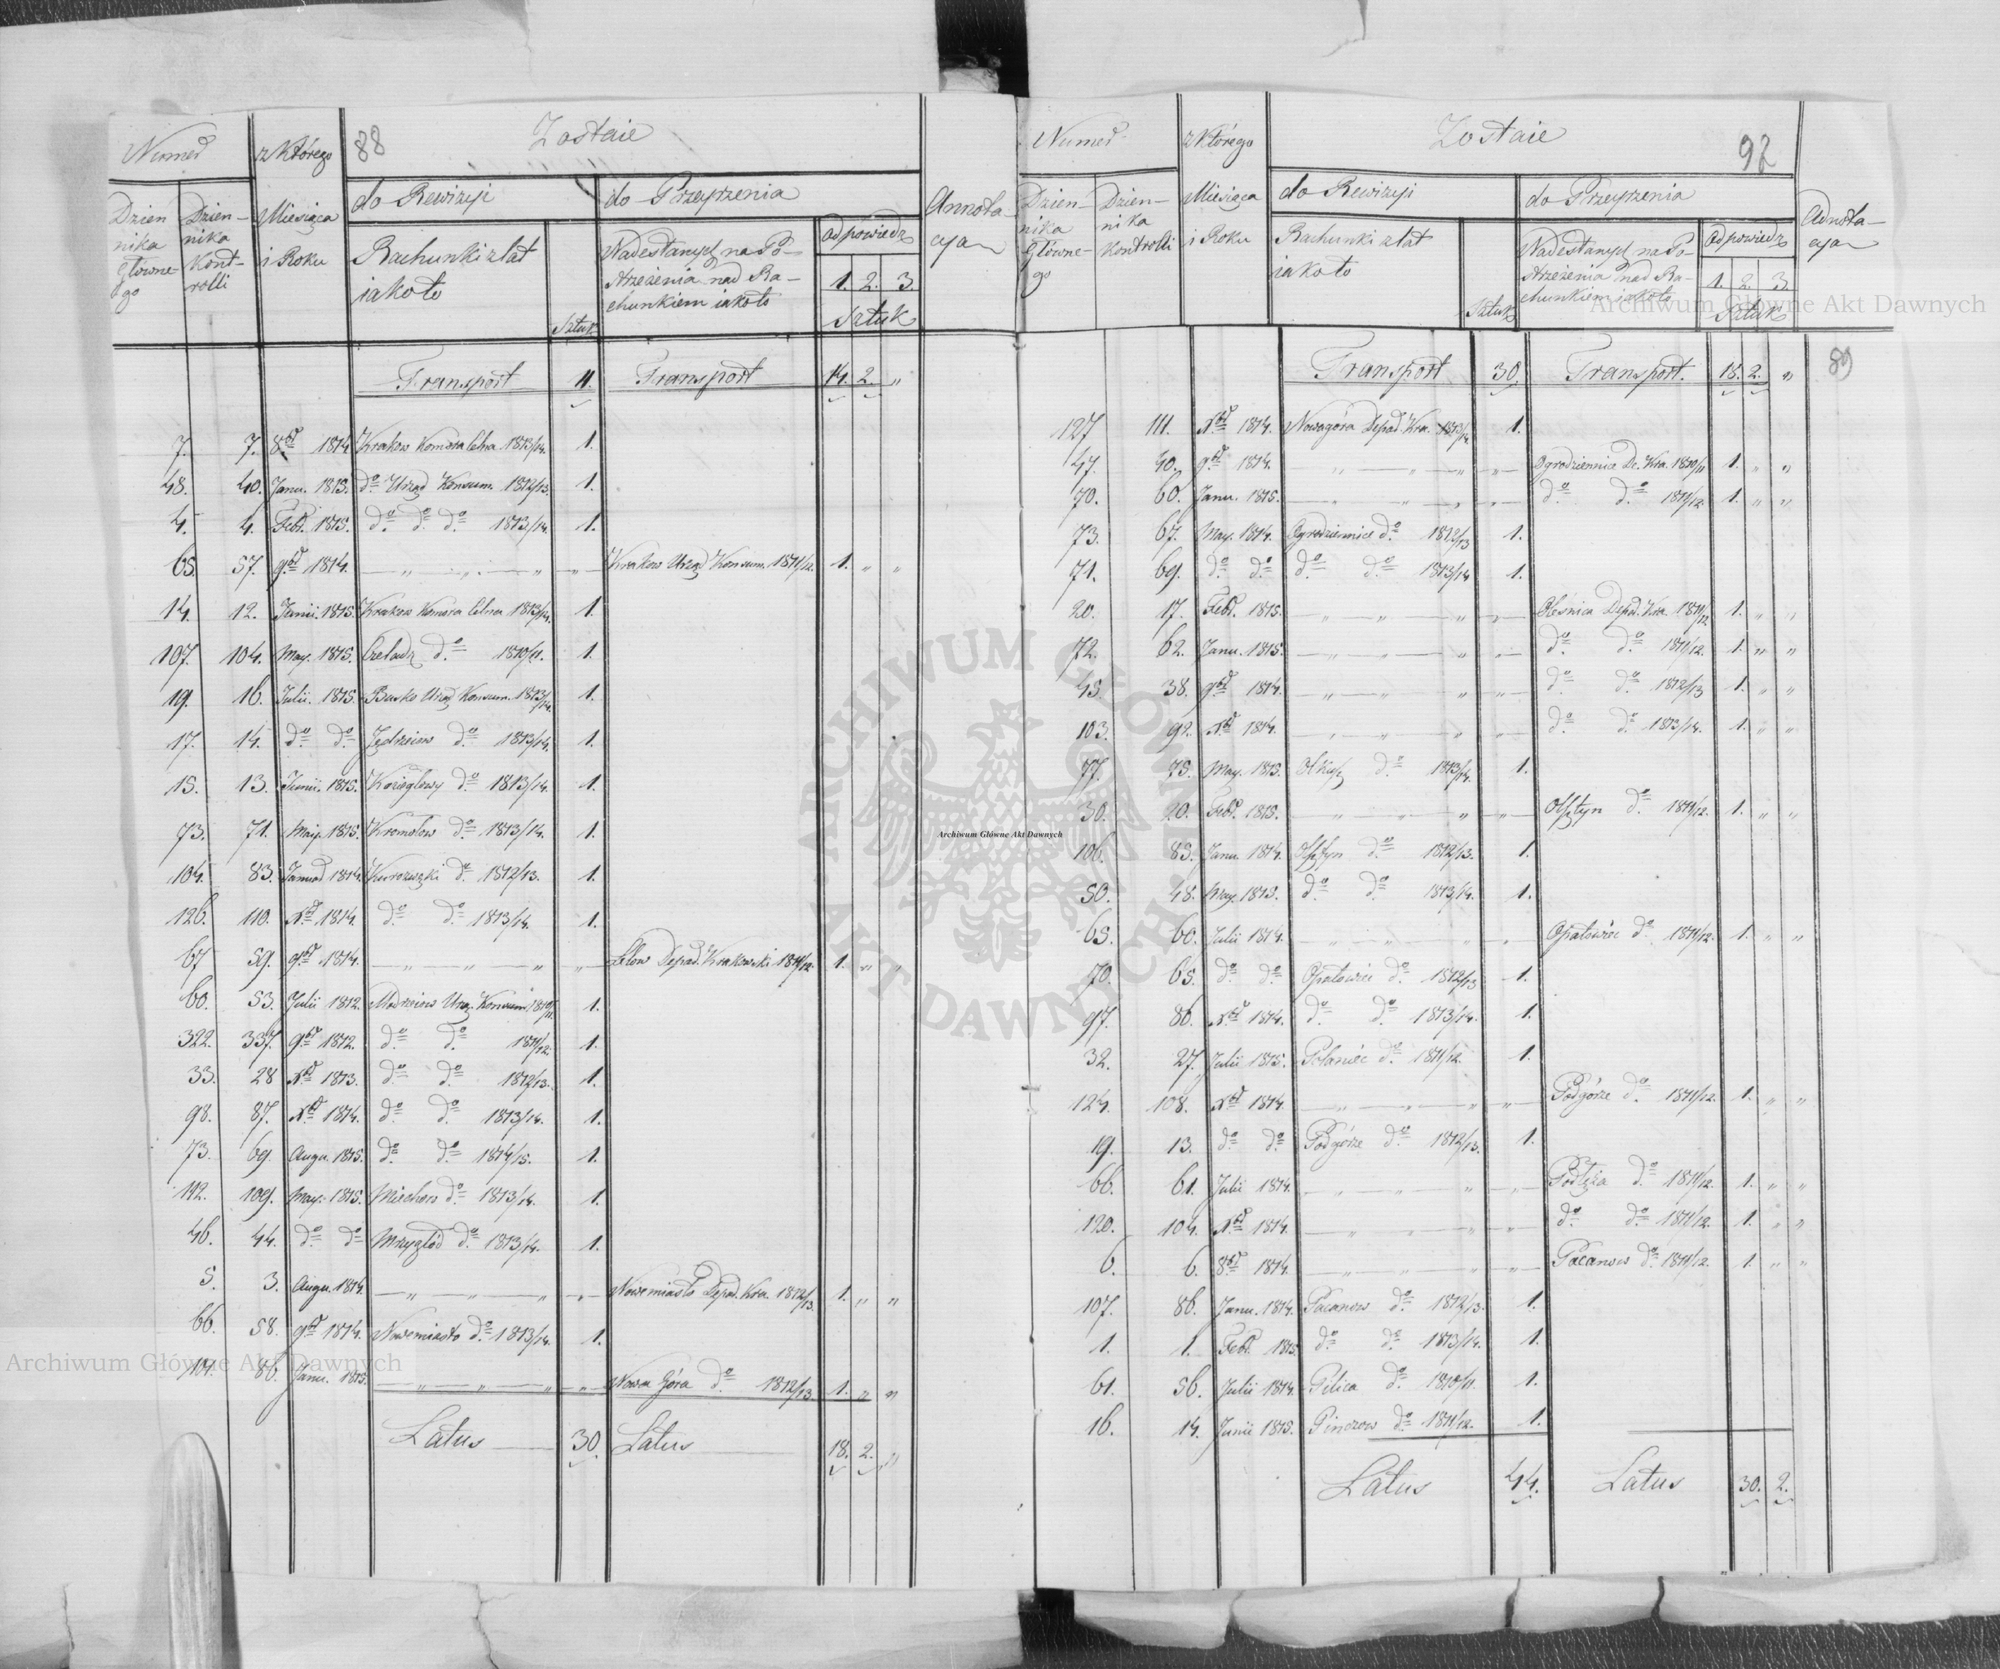 88
Numer
z którego
Zostaie
Miesiąca
i Roku
Dzien
nika
główne-
go
Dzien-
nika
Kont-
rolli
do Rewizyi
do Przeyrzenia
Annota-
cya
Rachunki z lat
iako to
Sztuk
Nadesłanych na Po-
strzeżenia nad Ra-
chunkiem iako to
Odpowiedz
1. 2. 3.
Sztuk
Transport 11. Transport 14. 2. „
7. 7. 8br 1814 Krakow Komora Celna 1813/14. 1.
48. 40. Janu. 1815. do Urząd Konsum. 1812/13. 1.
4. 4. Febr. 1815. do do do 1813/14. 1.
65. 57. 9br 1814. — „ — „ — „ — „ — Krakow Urząd Konsum. 1811/12. 1. „ „
14. 12. Junii. 1815. Krakow Komora Celna 1813/14. 1.
107. 104. May. 1815. Czeladz do 1810/11. 1.
19. 16. Julii. 1815. Busko Urząd Konsum. 1813/14. 1.
17. 14. do do Jędrzeiow do 1813/14. 1.
15. 13. Junii. 1815. Koziegłowy do 1813/14. 1.
73. 71. May. 1815. Kromołow do 1813/14. 1.
104. 83. 1814. Kurozwęki do 1812/13. 1.
126. 110. Xbr 1814. do do 1813/14. 1.
67 59. 9br 1814. — „ — „ — „ — „ Lelow Depar. Krakowski 1811/12. 1. „ „
60. 53. Julii 1812. Urzą. Konsum. 1810/11. 1.
322. 337. 9br 1812. do do 1811/12. 1.
33. 28 Xbr 1813. do do 1812/13. 1.
98. 87. Xbr 1814. do do 1813/14. 1.
73. 69. Augu. 1815. do do 1814/15. 1.
112. 109. May. 1815. Miechow do 1813/14. 1.
46. 44. do do Mrzygłod do 1813/14. 1.
5. 3. Augu. 1814. — „ — „ — „ — „ Nowemiasto Depar. Kra. 1812/13. 1. „ „
66. 58. 9br 1814. Nowemiasto do 1813/14. 1.
86. Janu. 1815. — „ — „ — „ — „ Nowa Góra do 1812/13. 1. „ „
Latus 30 Latus 18. 2. „
Numer
z którego
Zostaie
92
Miesiąca
i Roku
Dzien-
nika
Główne-
go
Dzien-
nika
Kontrolli
do Rewizyi
do Przeyrzenia
Adnota-
cya
Rachunki z lat
iako to
Sztuk
Nadesłanych na Po-
strzeżenia nad Ra-
chunkiem iako to
Odpowiedz
1. 2. 3.
Sztuk
89
Transport 30. Transport. 18. 2. „
127 111. Xbr 1814. Nowagóra Depar. Kra. 1813/14 1.
47. 40. 9br 1814. — „ — „ — „ — „ Ogrodziennice De. Kra. 1810/11 1. „ „
70. 60. Janu. 1815. — „ — „ — „ — „ do do 1811/12. 1. „ „
73. 67. May. 1814. Ogrodziennice do 1812/13 1.
71. 69. do do do do 1813/14 1.
20. 17. Febr. 1815. — „ — „ — „ — „ Olesnica Depar. Kra. 1811/12 1. „ „
72. 62. Janu. 1815. — „ — „ — „ — „ do do 1811/12. 1. „ „
45. 38. 9br 1814. — „ — „ — „ — „ do do 1812/13 1. „ „
103. 92. Xbr 1814. — „ — „ — „ — „ do do 1813/14. 1. „ „
77. 75. May. 1815. Olkusz do 1813/14. 1.
30. 20. Febr. 1815. — „ — „ — „ — „ Olsztyn do 1811/12. 1. „ „
106. 83. Janu. 1814. Olsztyn do 1812/13. 1.
50. 48. May. 1815. do do 1813/14. 1.
65. 60. Julii 1814. — „ — „ — „ — „ Opatowiec do 1811/12. 1. „ „
70. 65. do do Opatowiec do 1812/13 1.
97. 86. Xbr 1814. do do 1813/14. 1.
32. 27. Julii 1815. Połaniec do 1811/12. 1.
124. 108. Xbr 1814. — „ — „ — „ — „ Podgórze do 1811/12. 1. „ „
19. 13. do do Podgórze do 1812/13. 1.
66. 61. Julii 1814. — „ — „ — „ — „ do 1811/12. 1. „ „
120. 104. Xbr 1814. — „ — „ — „ — „ do do 1811/12. 1. „ „
6. 6. 8br 1814. — „ — „ — „ — „ Pacanow do 1811/12. 1. „ „
107. 86. Janu. 1814. Pacanow do 1812/13. 1.
1. 1. Febr. 1815. do do 1813/14. 1.
61. 56. Julii 1814. Pilica do 1810/11. 1.
16. 14. Junii 1815. Pinczow do 1811/12. 1.
Latus 44. Latus 30. 2.
Archiwum Główne Akt Dawnych
ARCHIWUM GŁÓWNE AKT DAWNYCH
Archiwum Główne Akt Dawnych
Archiwum Główne Akt Dawnych